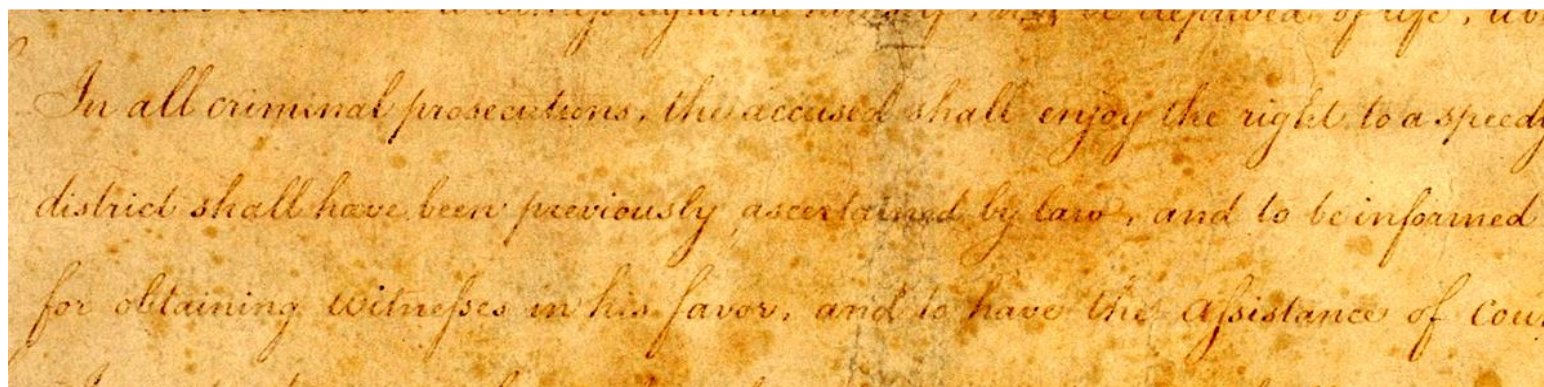 to be a witness against himself, nor be deprived of life,
In all criminal prosecutions, the accused shall enjoy the right to a speedy
district shall have been previously ascertained by law, and to be informed
for obtaining witneſses in his favor, and to have the aſsistance of